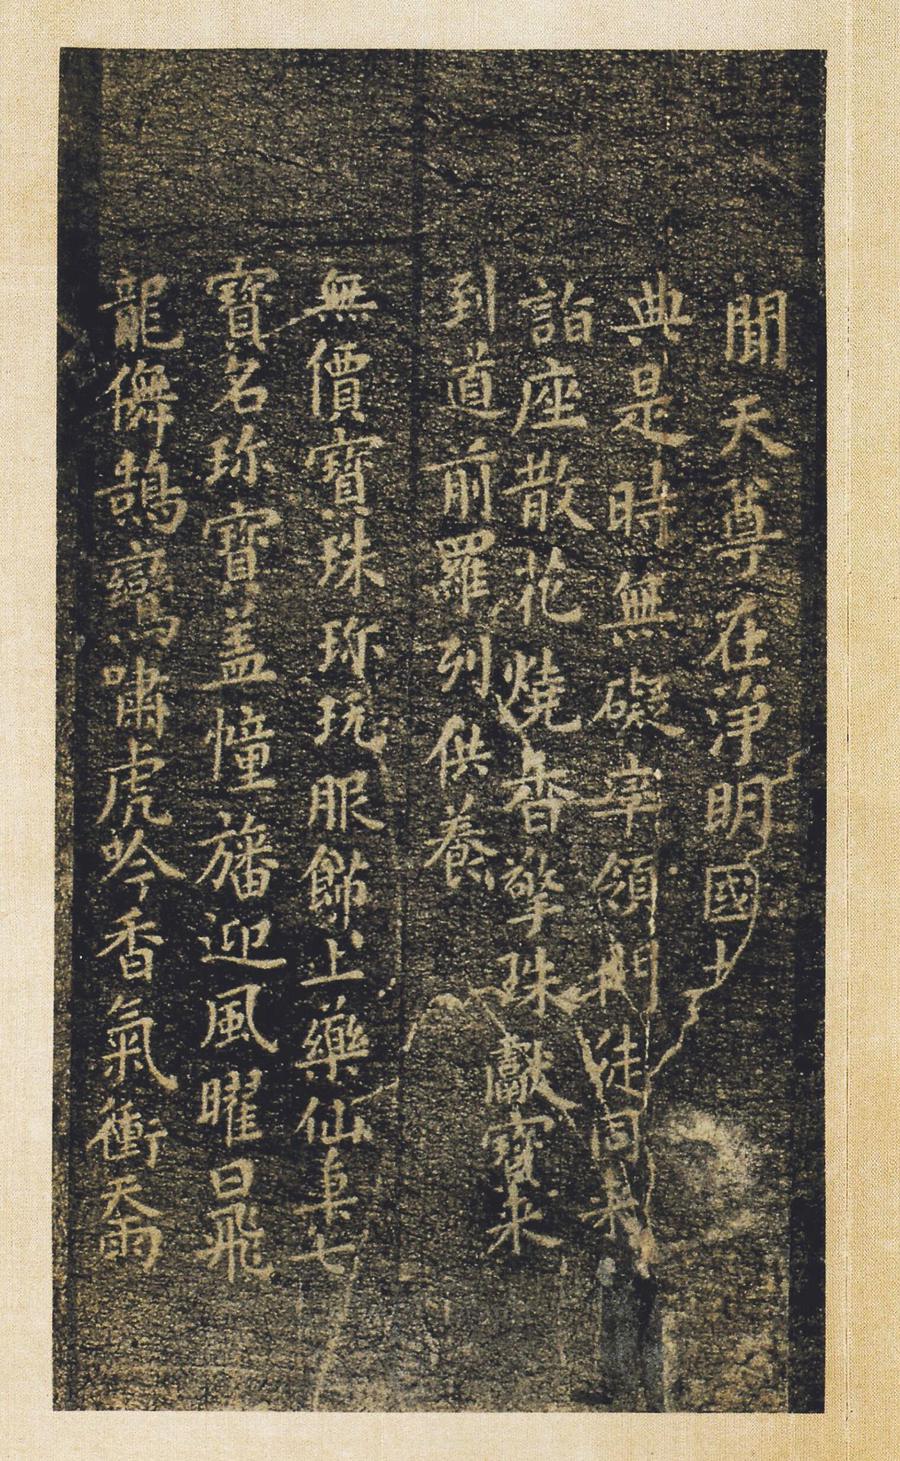 聞天尊在淨明國土
典是時無礙宰領門徒同来
詣座散花燒香擎珠獻寶来
到道前羅列供養
無價寶珠珎玩服飾上藥仙
寶名珎寶盖幢旛迎風曜日飛
龍儛鵠鸞嘯虎吟香氣衝天雨